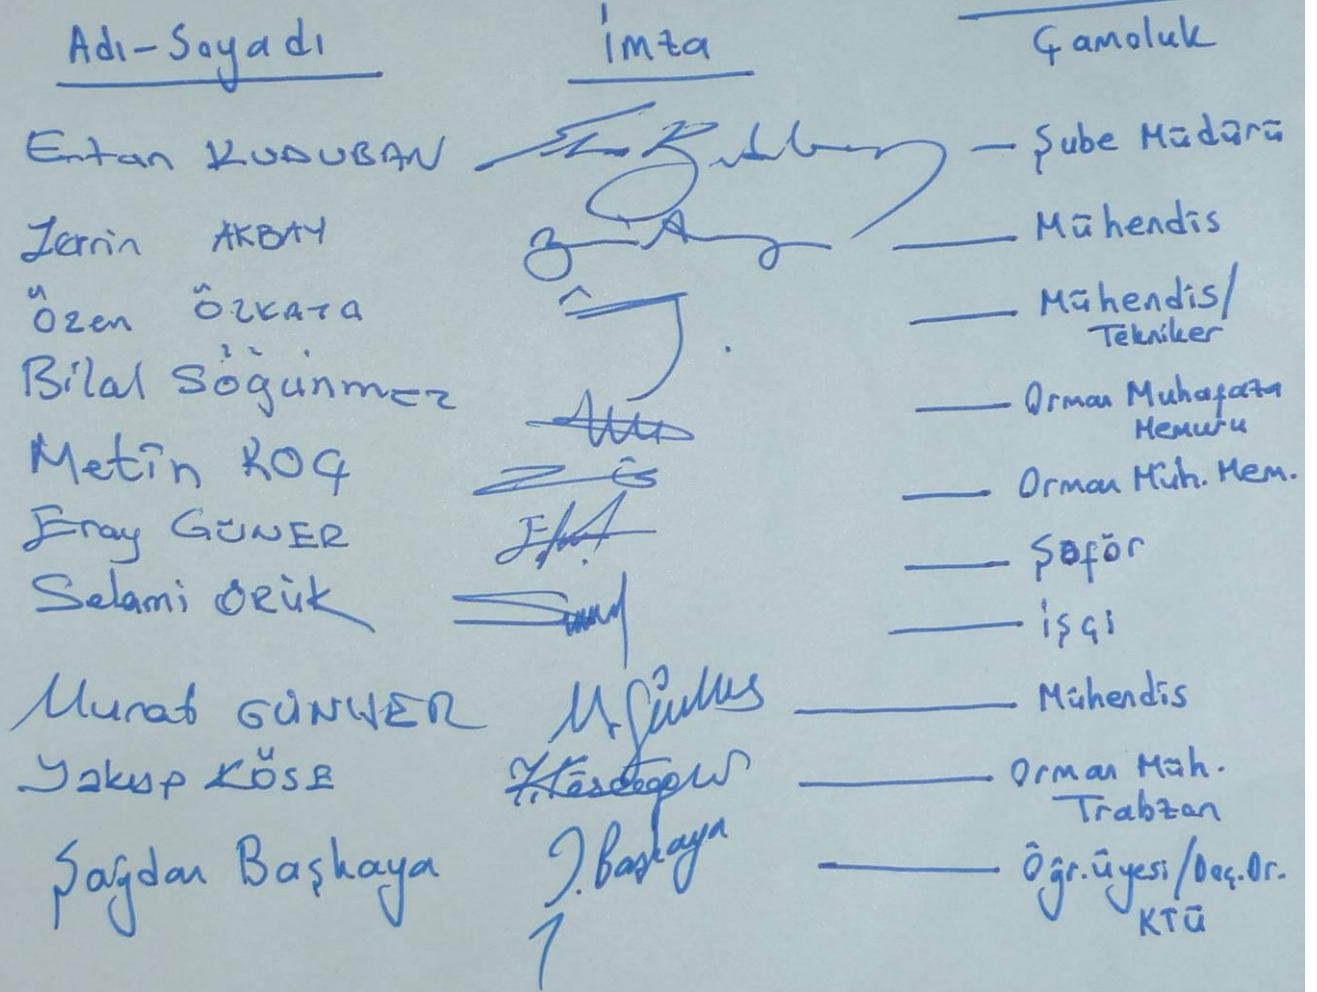 Adı-Soyadı İmza Çamoluk
Ertan KUDUBAN — Şube Müdürü
Zerrin AKBAY — Mühendis
Özen ÖZKAYA — Mühendis/
Tekniker
Bilal Söğünmez — Orman Muhafaza
Memuru
Metin KOÇ — Orman Müh. Mem.
Eray GÜNER — Şoför
Selami ÖRÜK — İşçi
Murat GÜNWER — Mühendis
Yakup KÖSE — Orman Müh.
Trabzon
Şağdan Başkaya Ş. Başkaya — Öğr. Üyesi/Doç. Dr.
KTÜ